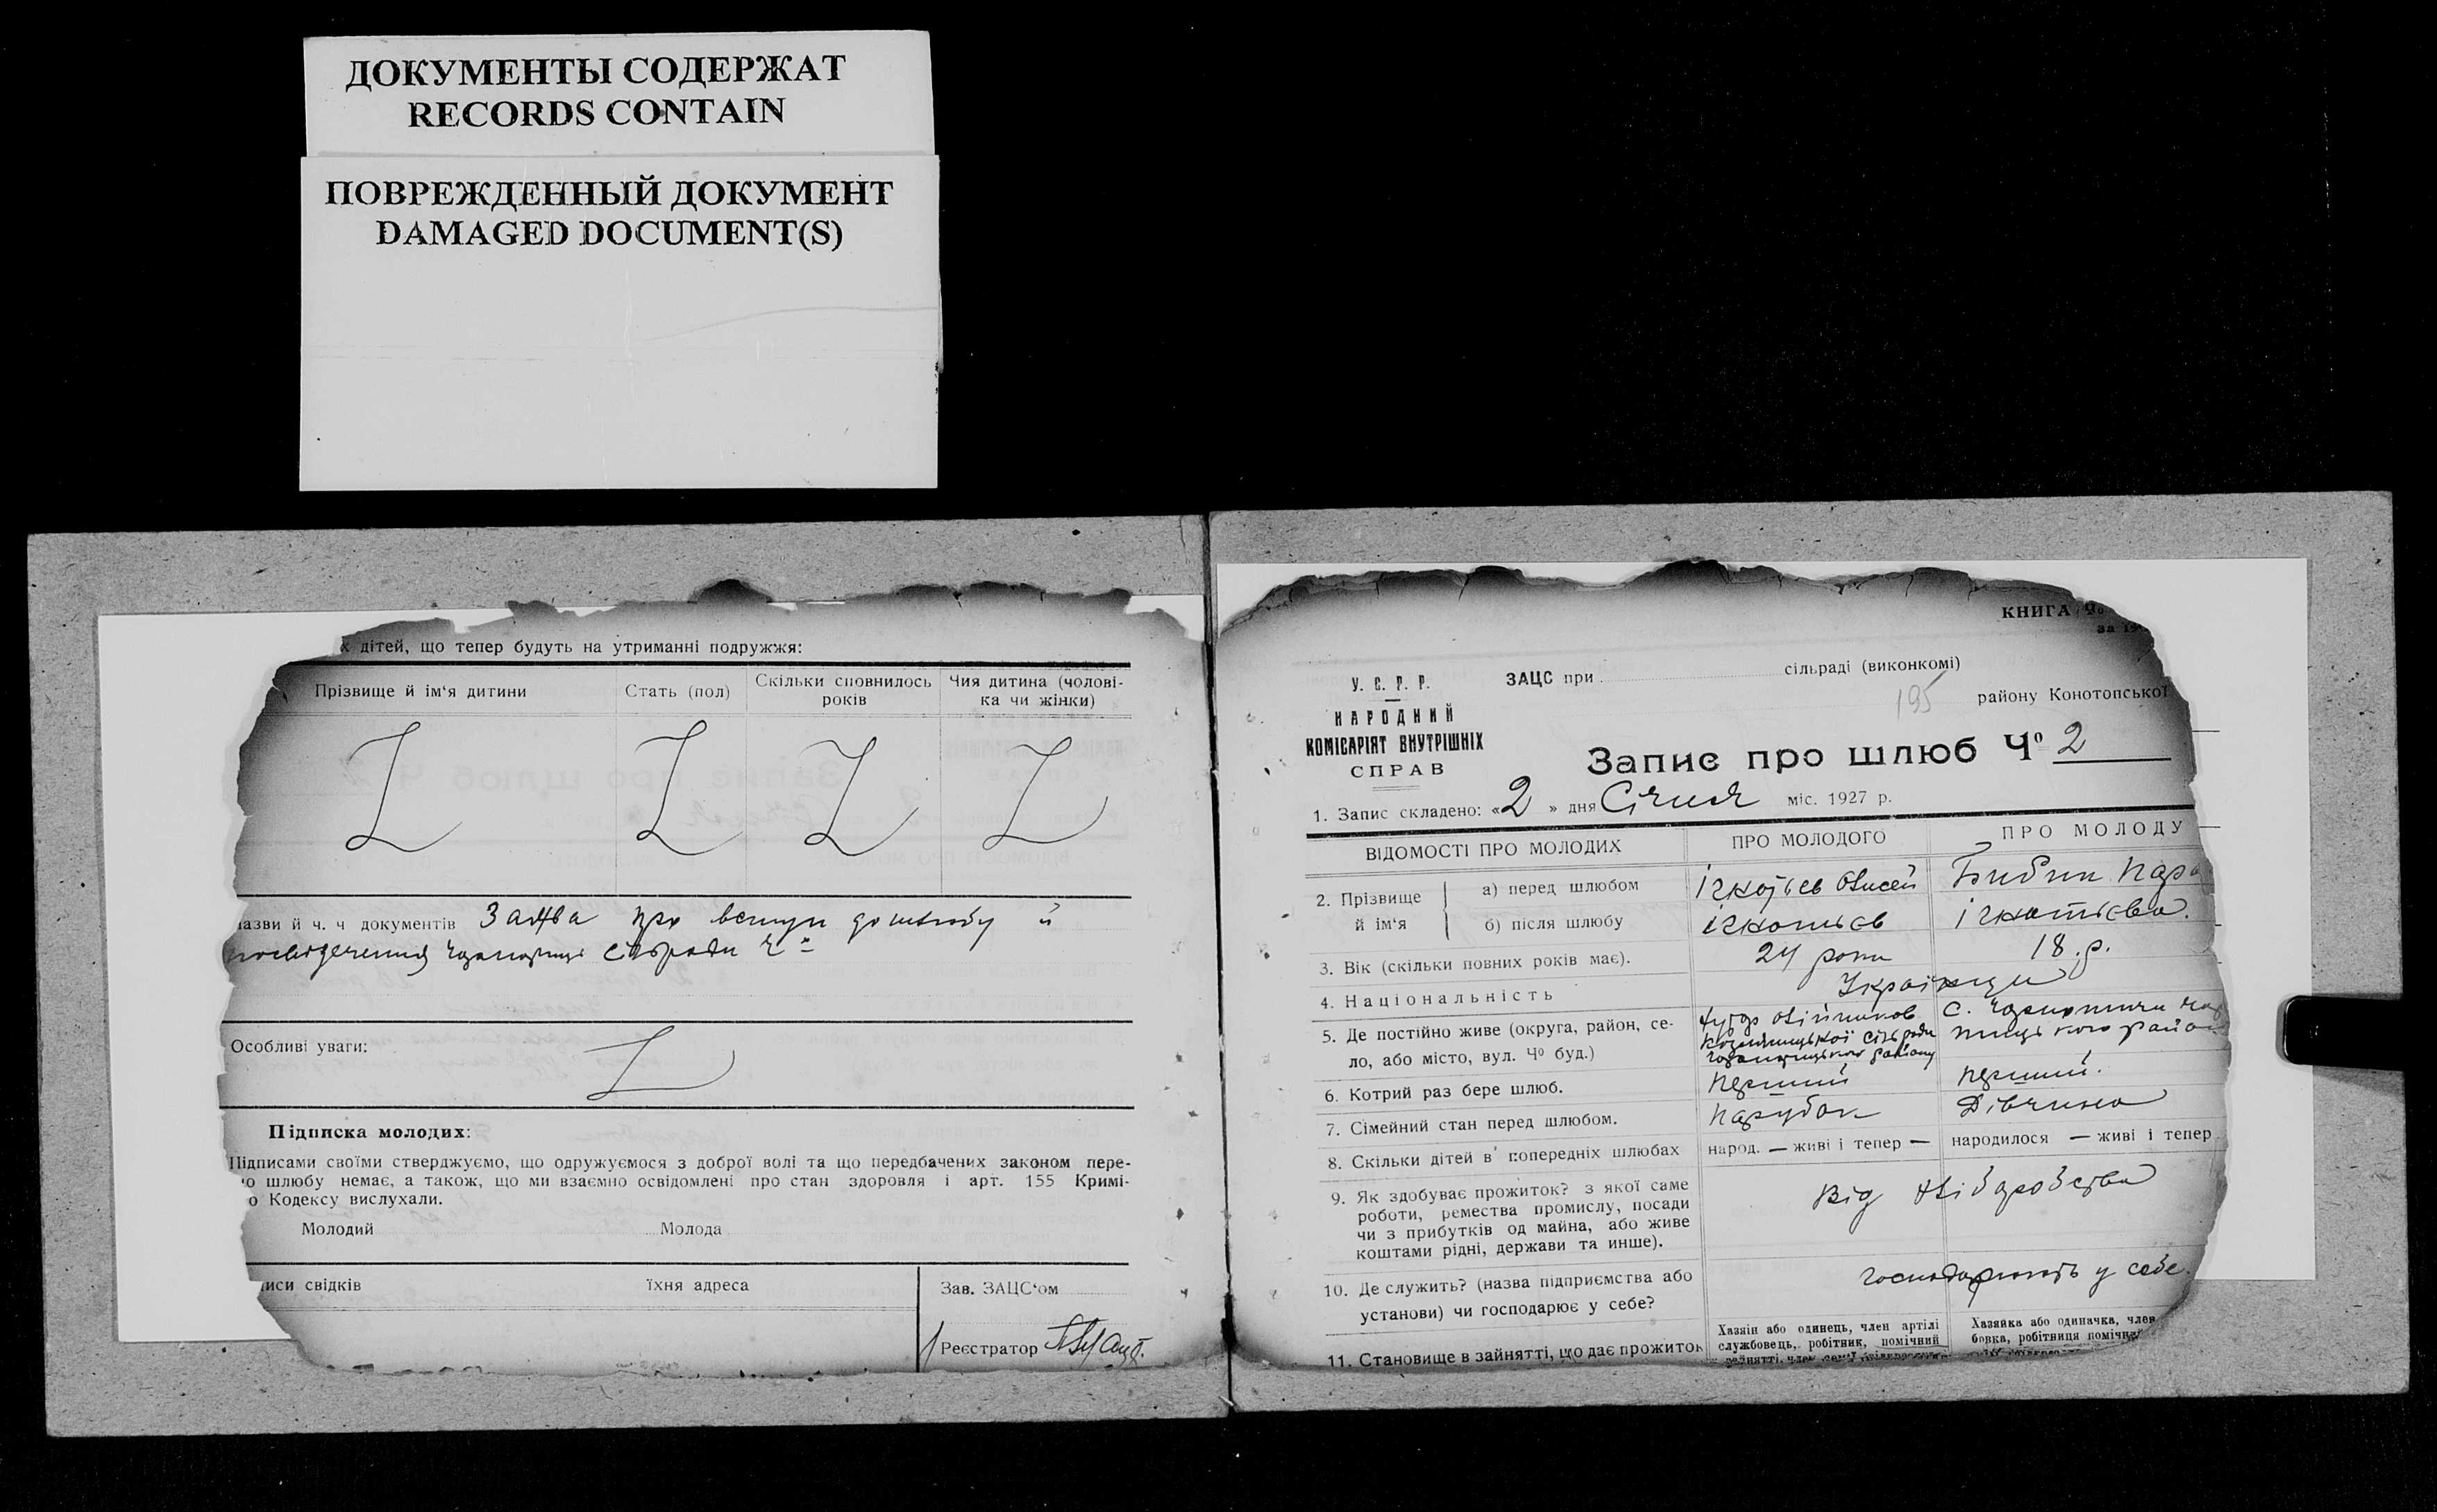 ДОКУМЕНТЫ СОДЕРЖАТ
RECORDS CONTAIN
ПОВРЕЖДЕННЫЙ ДОКУМЕНТ
DAMAGED DOCUMENT(S)
дітей, що тепер будуть на утриманні подружжя:
Прізвище й ім‘я дитини
Стать (пол)
Скільки сповнилось
років
Чия дитина (чолові-
ка чи жінки)
Z Z Z Z
азви й ч. ч документів Заява про вступ до шлюбу й
посвідчення сільради Ч°
Особливі уваги:
Z
Підписка молодих:
Підписами своїми стверджуємо, що одружуємося з доброї волі та що передбачених законом пере-
о шлюбу немає, а також, що ми взаємно освідомлені про стан здоровля і арт. 155 Кримі-
о Кодексу вислухали.
Молодий
Молода
иси свідків
їхня адреса
Зав. ЗАЦС‘ом
Реєстратор
КНИГА Чо
за 19
У. С. Р. Р.
НАРОДНИЙ
КОМІСАРІЯТ ВНУТРІШНІХ
СПРАВ
ЗАЦС при сільраді (виконкомі)
195 району Конотопської
Запис про шлюб Чо 2
1. Запис складено: «2» дня Січня міс. 1927 р.
ВІДОМОСТІ ПРО МОЛОДИХ
ПРО МОЛОДОГО
ПРО МОЛОДУ
2. Прізвище
й ім‘я
а) перед шлюбом
б) після шлюбу
3. Вік (скільки повних років має).
24 роки
18 р.
4. Національність
Українці
5. Де постійно живе (округа, район, се-
ло, або місто, вул. Чо буд.)
6. Котрий раз бере шлюб.
перший
перший.
7. Сімейний стан перед шлюбом.
парубок
Дівчина
8. Скільки дітей в попередніх шлюбах
народ. — живі і тепер —
народилося — живі і тепер
9. Як здобуває прожиток? з якої саме
роботи, ремества промислу, посади
чи з прибутків од майна, або живе
коштами рідні, держави та инше).
Від хліборобства
10. Де служить? (назва підприємства або
установи) чи господарює у себе?
господарюють у себе.
11. Становище в зайнятті, що дає прожиток
Хазяін або одинець, член артілі
службовець, робітник, помічний
Хазяйка або одиначка, член
бовка, робітниця помічна